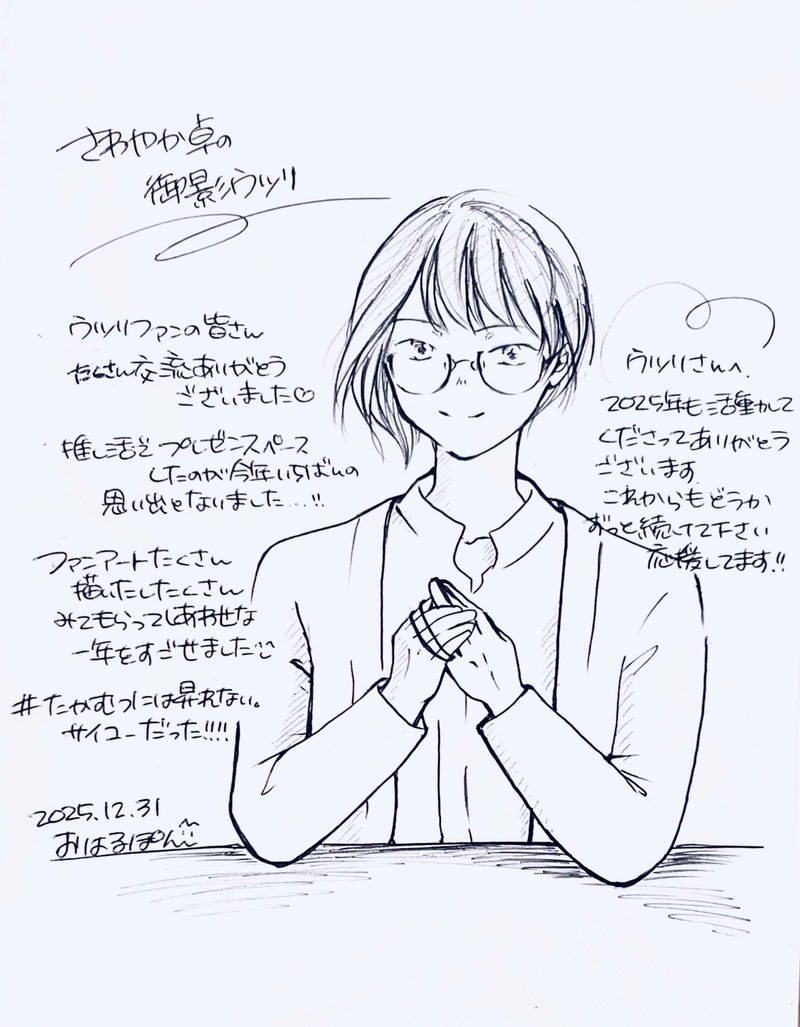 さわやか卓の
御影ウツリ
ウツリファンの皆さん
たくさん交流ありがとう
ございました♡
推し活を プレゼンスペース
したのが今年いちばんの
思い出となりました...!!
ファンアートたくさん
描いたしたくさん
みてもらってしあわせな
一年をすごせました
#たかむつには昇れない。
サイコーだった!!!!
2025.12.31
おはるぽん
ウツリさんへ.
2025年も活動して
くださってありがとう
ございます
これからもどうか
ずっと続けて下さい
応援してます!!